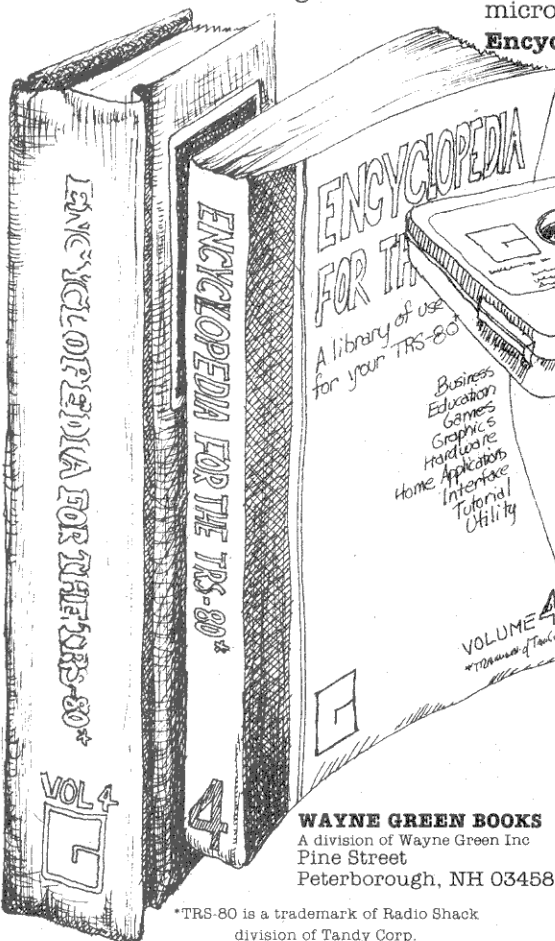 micro
Ency
ENCYCLOPEDIA FOR THE TRS-80*
VOL 4
ENCYCLOPEDIA FOR THE TRS-80*
4
ENCYCLOPEDIA
FOR TH
A library of use
for your TRS-80*
Business
Education
Games
Graphics
Hardware
Home Applications
Interface
Tutorial
Utility
VOLUME 4
WAYNE GREEN BOOKS
A division of Wayne Green Inc
Pine Street
Peterborough, NH 03458
*TRS-80 is a trademark of Radio Shack
division of Tandy Corp.